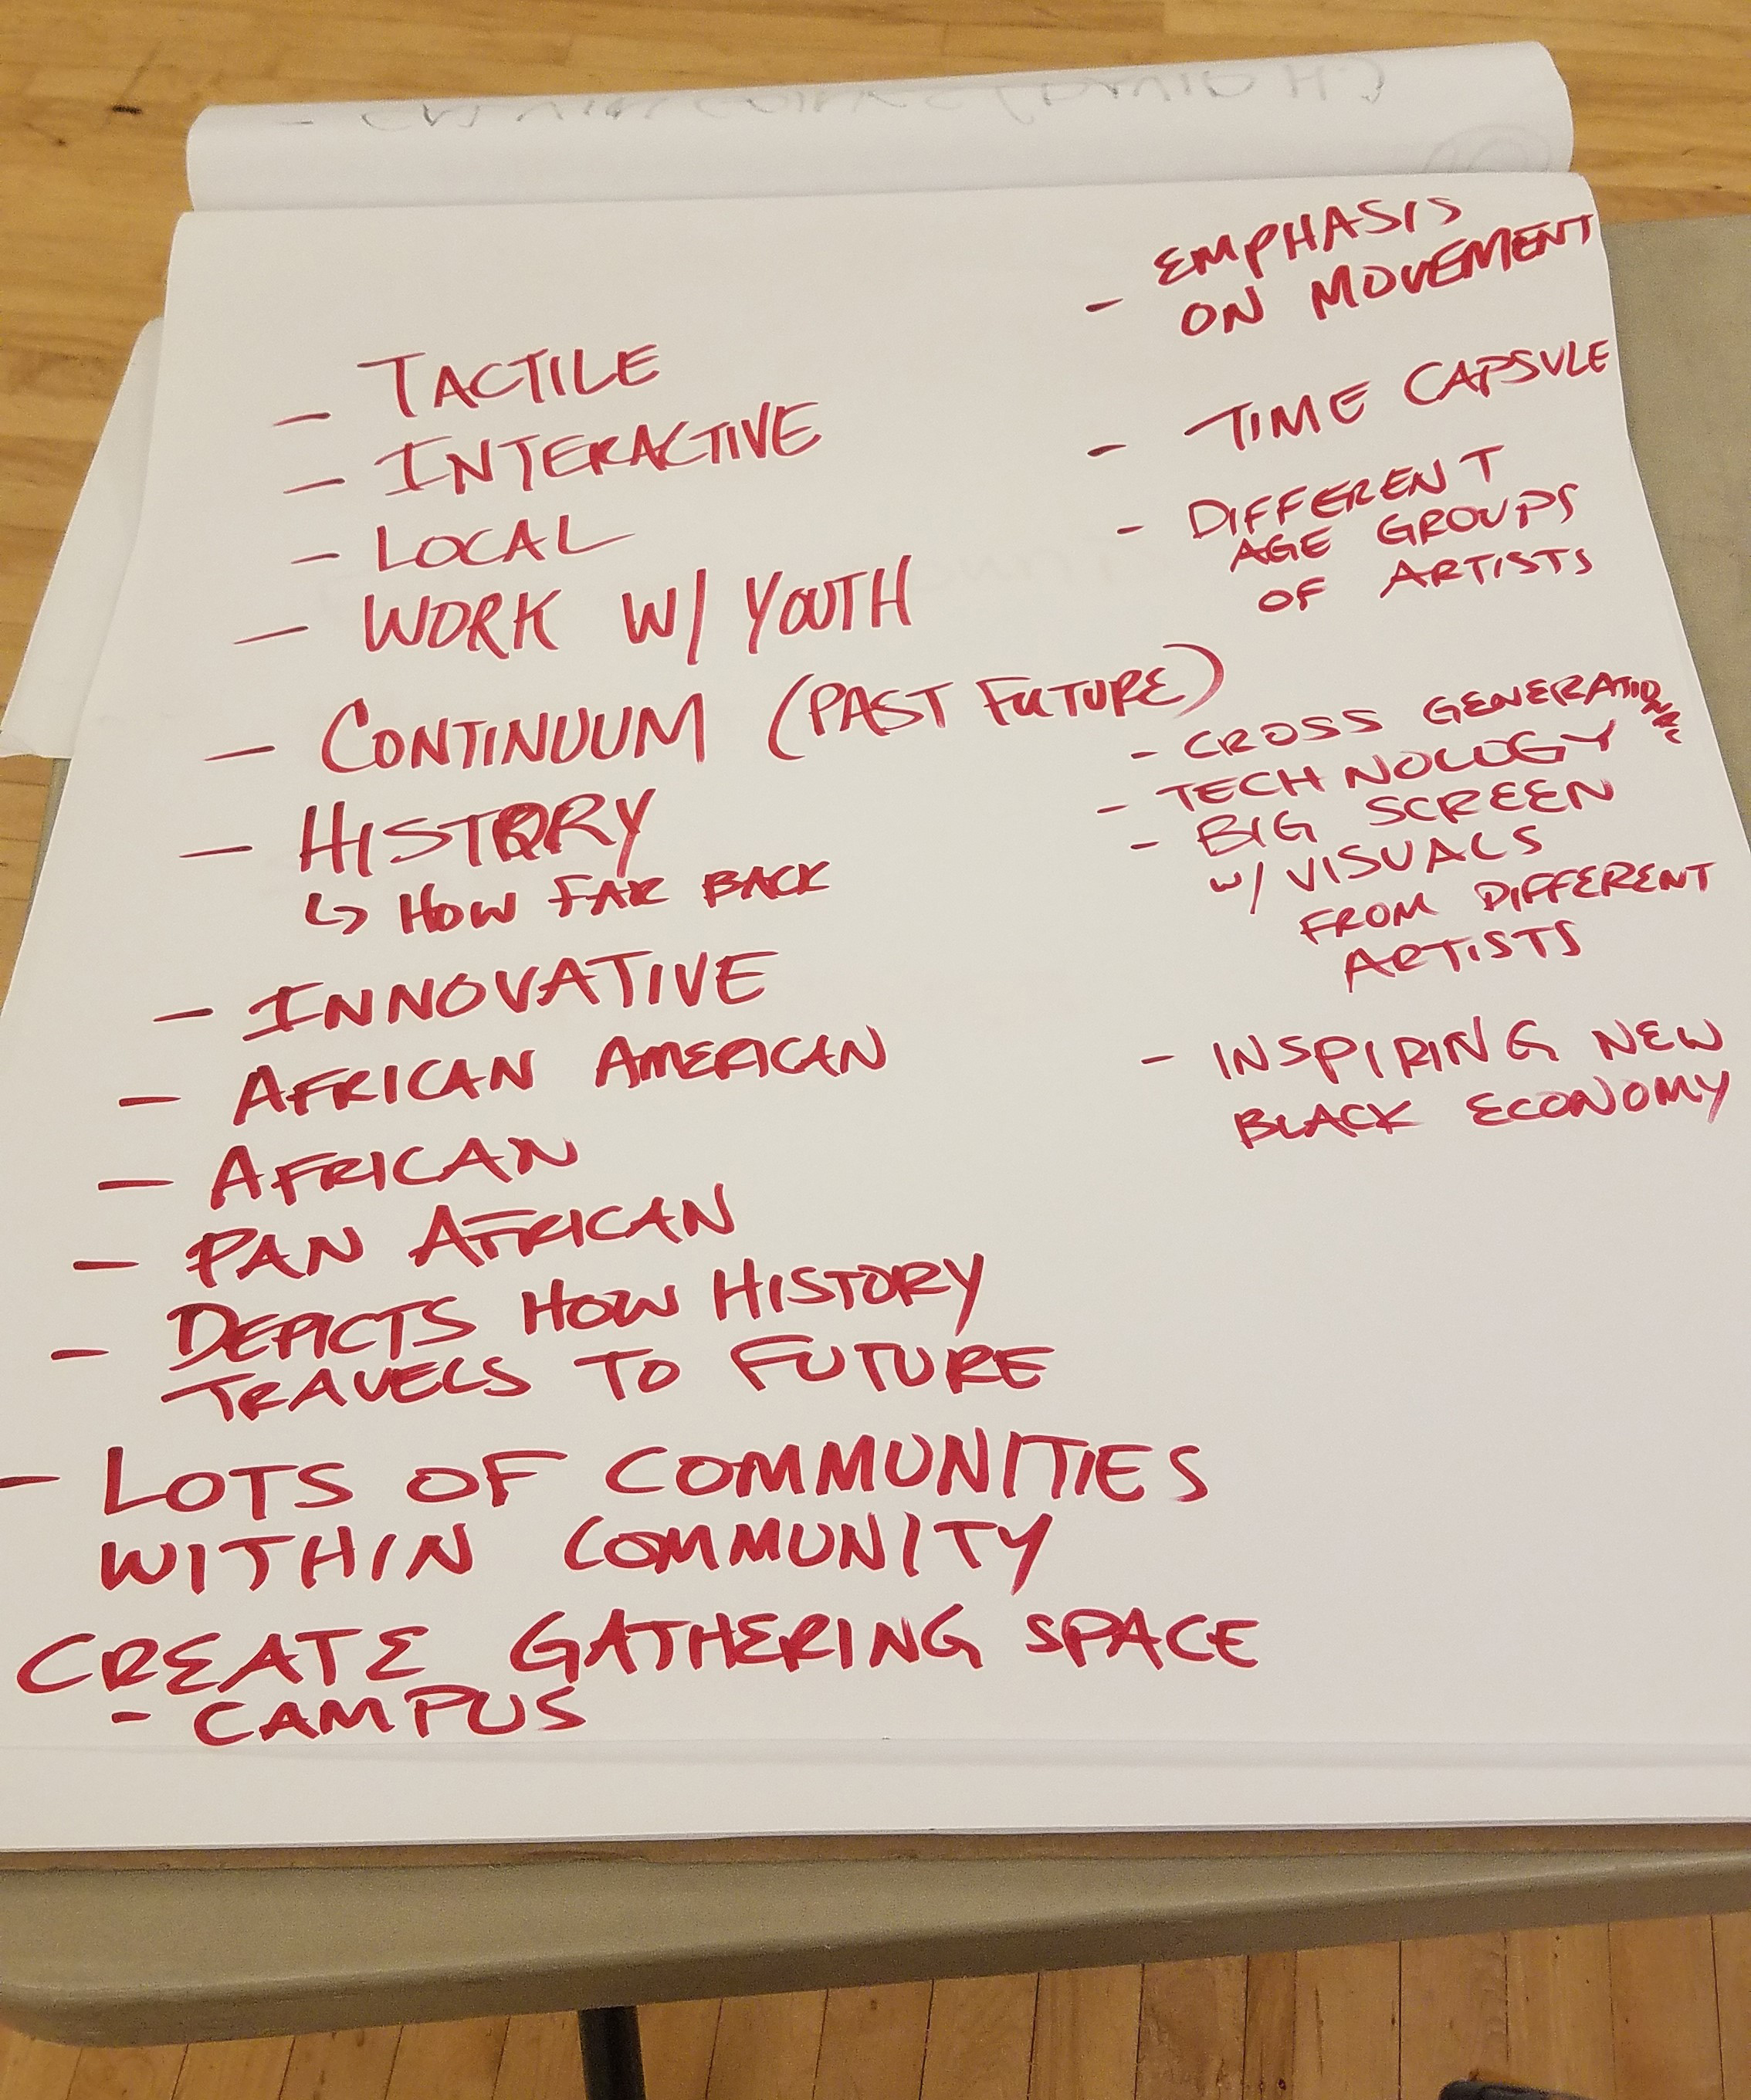 - TACTILE
- INTERACTIVE
- LOCAL
- WORK W/ YOUTH
- CONTINUUM (PAST FUTURE)
- HISTORY
↳ HOW FAR BACK
- INNOVATIVE
- AFRICAN AMERICAN
- AFRICAN
- PAN AFRICAN
- DEPICTS HOW HISTORY
TRAVELS TO FUTURE
- LOTS OF COMMUNITIES
WITHIN COMMUNITY
CREATE GATHERING SPACE
- CAMPUS
- EMPHASIS
ON MOVEMENT
- TIME CAPSULE
- DIFFERENT
AGE GROUPS
OF ARTISTS
- CROSS
- TECHNOLOGY
- BIG SCREEN
W/ VISUALS
FROM DIFFERENT
ARTISTS
- INSPIRING NEW
BLACK ECONOMY